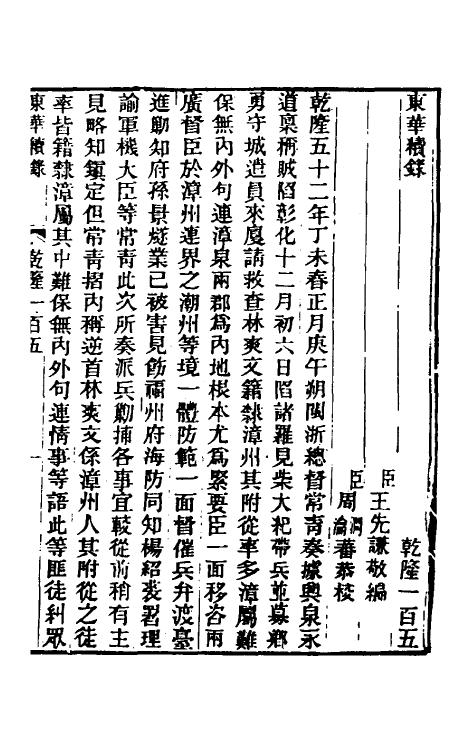 東華續錄　乾隆一百五
臣王先謙敬編
臣周潤蕃瀹蕃恭校
乾隆五十二年丁未春正月庚午朔閩浙總督常青奏據興泉永
道稟稱賊陷彰化十二月初六日陷諸羅見柴大紀帶兵並募鄉
勇守城遣員來廈請救查林爽文籍隸漳州其附從率多漳屬難
保無內外句連漳泉兩郡爲內地根本尤爲緊要臣一面移咨兩
廣督臣於漳州連界之潮州等境一體防範一面督催兵弁渡臺
進勦知府孫景燧業已被害見飭福州府海防同知楊紹裘署理
諭軍機大臣等常青此次所奏派兵勦捕各事宜較從前稍有主
見略知鎭定但常青摺內稱逆首林爽文係漳州人其附從之徒
率皆籍隸漳屬其中難保無內外句連情事等語此等匪徒糾眾
東華續錄　乾隆一百五　一